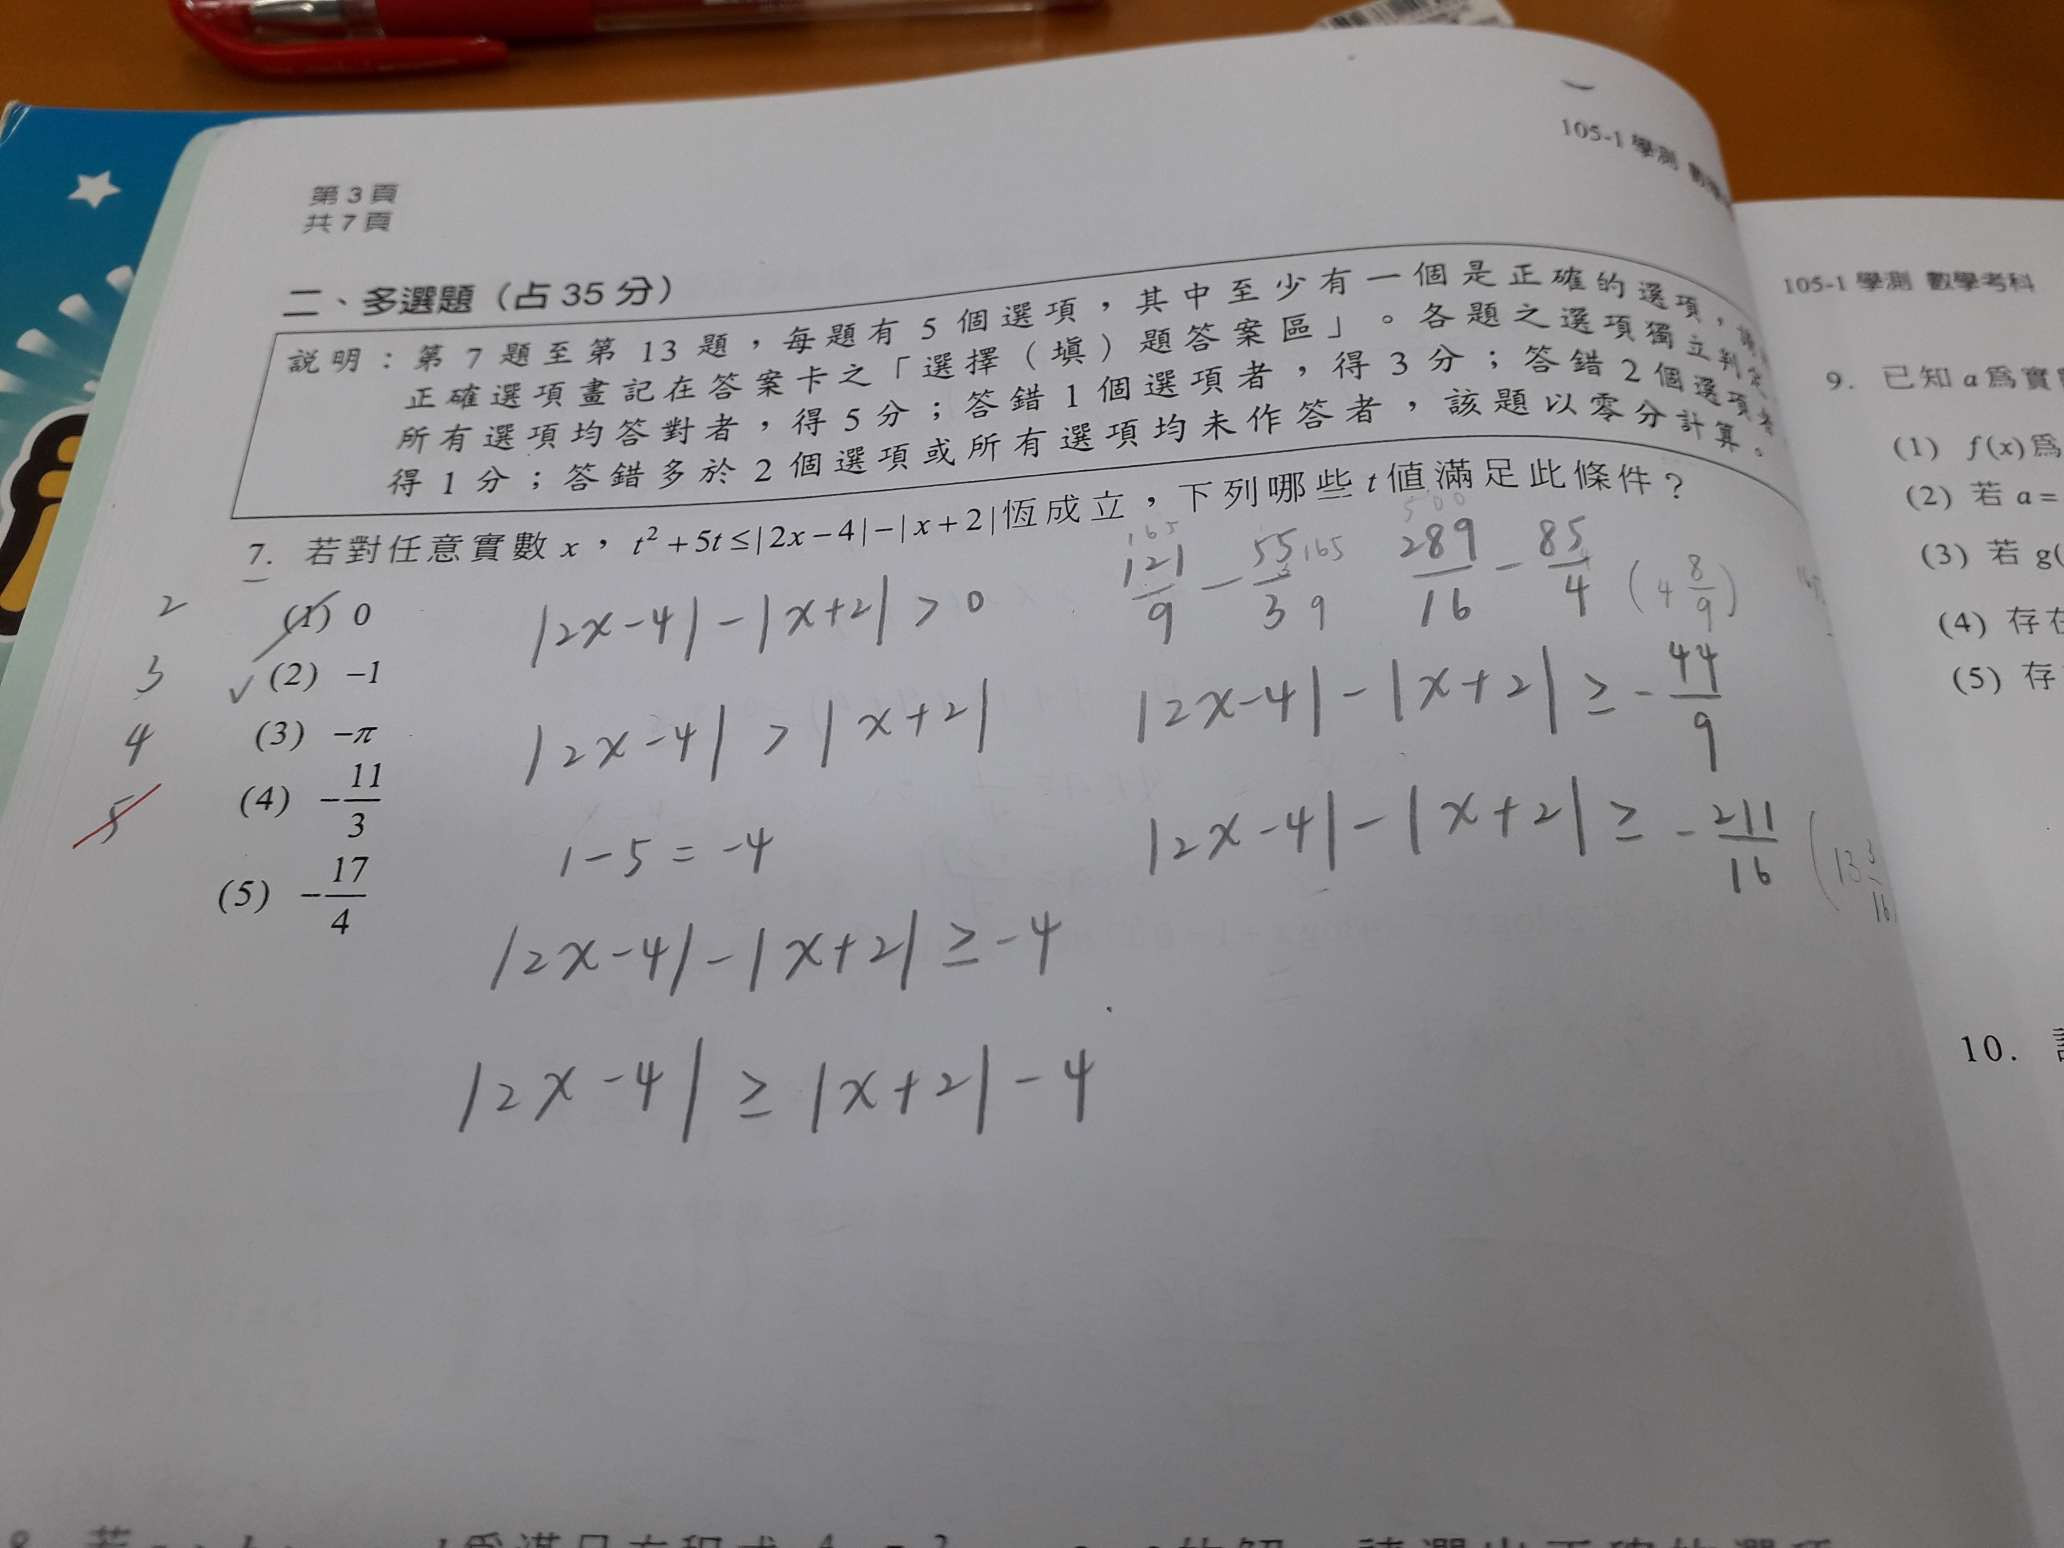 105-1 學測
第 3 頁
共 7 頁
二、多選題（占 35 分）
說明：第 7 題至第 13 題，每題有 5 個選項，其中至少有一個是正確的選項，
正確選項畫記在答案卡之「選擇（填）題答案區」。各題之選項獨立判定
所有選項均答對者，得 5 分；答錯 1 個選項者，得 3 分；答錯 2 個選項者
得 1 分；答錯多於 2 個選項或所有選項均未作答者，該題以零分計算。
7. 若對任意實數 x，t² + 5t ≤ |2x − 4| − |x + 2| 恆成立，下列哪些 t 值滿足此條件？
(1) 0
(2) −1
(3) −π
(4) −11/3
(5) −17/4
2
3
4
5
|2x−4|−|x+2| > 0
|2x−4| > |x+2|
1−5 = −4
|2x−4|−|x+2| ≥ −4
|2x−4| ≥ |x+2|−4
165
121/9 − 55/3 165
9
500
289/16 − 85/4
(4 8/9)
|2x−4|−|x+2| ≥ −44/9
|2x−4|−|x+2| ≥ −211/16
(13 3/16
105-1 學測 數學考科
9. 已知 a 為實
(1) f(x) 為
(2) 若 a =
(3) 若 g(
(4) 存在
(5) 存
10.